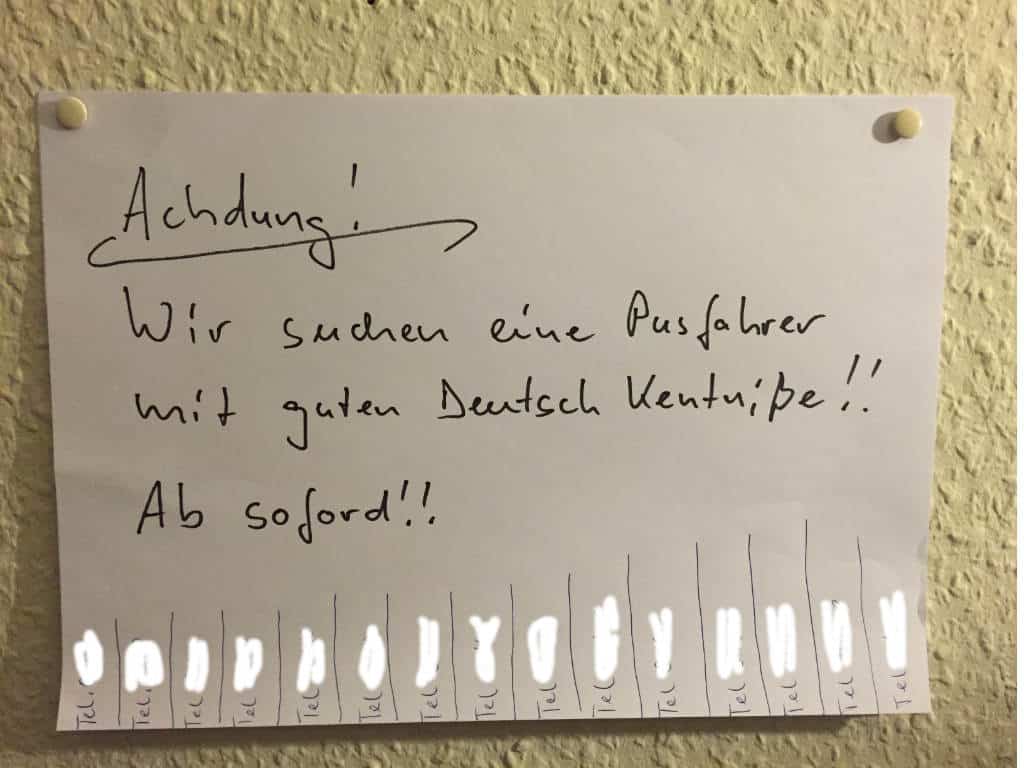 Achdung!
Wir suchen eine Pusfahrer
mit guten Deutsch Kentniße!!
Ab soford!!
Tel. Tel. Tel. Tel Tel Tel Tel Tel Tel Tel Tel Tel Tel Tel Tel